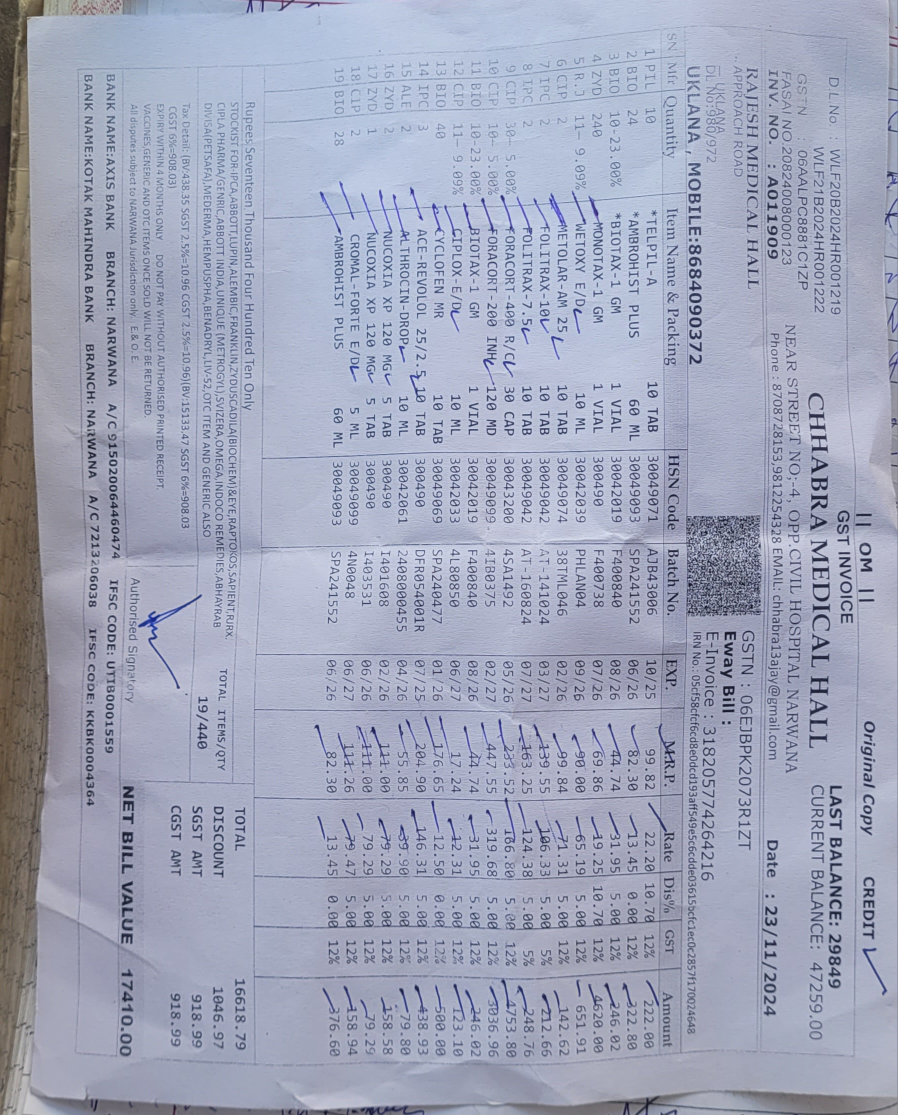 || OM ||
GST INVOICE
Original Copy CREDIT
D.L.No : WLF20B2024HR001219
WLF21B2024HR001222
GSTN : 06AALPC8881C1ZP
FASAI NO 20824008000123
INV. NO. : A011909
CHHABRA MEDICAL HALL
NEAR STREET NO;-4, OPP.CIVIL HOSPITAL NARWANA
Phone : 8708728153,9812254328 EMAIL: chhabra13ajay@gmail.com
LAST BALANCE: 29849
CURRENT BALANCE: 47259.00
Date : 23/11/2024
RAJESH MEDICAL HALL
APPROACH ROAD
UKLANA
UKLANA , MOBILE:8684090372
GSTN : 06EJBPK2073R1ZT
Eway Bill :
E-Invoice : 318205774264216
SN Mfg Quantity Item Name & Packing HSN Code Batch No. EXP. M.R.P. Rate Dis% GST Amount
1 PIL 10 *TELPIL-A 10 TAB 30049071 AJB43006 10/25 99.82 22.20 10.70 12% 222.00
2 BIO 24 *AMBROHIST PLUS 60 ML 30049093 SPA241552 06/26 82.30 13.45 0.00 12% 322.80
3 BIO 10-23.00% *BIOTAX-1 GM 1 VIAL 30042019 F400840 08/26 44.74 31.95 5.00 12% 246.02
4 ZYD 240 MONOTAX-1 GM 1 VIAL 300490 F400738 07/26 69.86 19.25 10.70 12% 4650.00
5 R.J 11- 9.09% WETOXY E/D 10 ML 30042039 PHLAN04 09/26 90.00 65.19 5.00 12% 651.91
6 CIP 2 METOLAR-AM 25 10 TAB 30049074 38TML046 02/26 99.84 71.31 5.00 12% 142.62
7 IPC 2 FOLITRAX-10 10 TAB 30049042 AT-141024 03/27 139.55 106.33 5.00 5% 212.66
8 IPC 2 FOLITRAX-7.5 10 TAB 30049042 AT-160824 07/27 163.25 124.38 5.00 5% 248.76
9 CIP 30- 5.00% FORACORT-400 R/C 30 CAP 30043200 4SA1492 05/26 233.52 166.80 5.00 12% 4753.80
10 CIP 10- 5.00% FORACORT-200 INH 120 MD 30049099 4IB0375 02/27 447.55 319.68 5.00 12% 3036.96
11 BIO 10-23.00% BIOTAX-1 GM 1 VIAL 30042019 F400840 08/26 44.74 31.95 5.00 12% 246.02
12 CIP 11- 9.09% CIPLOX-E/D 10 ML 30042033 4L80850 06/27 17.24 12.31 5.00 12% 123.10
13 BIO 40 CYCLOFEN MR 10 TAB 30049069 SPA240477 01/26 176.65 12.50 0.00 12% 500.00
14 IPC 3 ACE-REVOLOL 25/2.5 10 TAB 300490 DFR054001R 07/25 204.90 146.31 5.00 12% 438.93
15 ALE 2 ALTHROCIN-DROP 10 ML 30042061 2408000455 04/26 55.85 39.90 5.00 12% 79.80
16 ZYD 2 NUCOXIA XP 120 MG 5 TAB 300490 I401608 02/26 111.00 79.29 5.00 12% 158.58
17 ZYD 1 NUCOXIA XP 120 MG 5 TAB 300490 I403531 06/26 111.00 79.29 5.00 12% 79.29
18 CIP 2 CROMAL-FORTE E/D 5 ML 30049099 4N0048 06/27 111.26 79.47 5.00 12% 158.94
19 BIO 28 AMBROHIST PLUS 60 ML 30049093 SPA241552 06/26 82.30 13.45 0.00 12% 376.60
Rupees Seventeen Thousand Four Hundred Ten Only
STOCKIST FOR:IPCA,ABBOTT,LUPIN,ALEMBIC,FRANKLIN,ZYDUSCADILA(BIOCHEM)&EYE,RAPTOKOS,SAPIENT,RJRX,
CIPLA PHARMA/GENRIC,ABBOTT INDIA,UNIQUE(METROGYL),SVIZERA,OMEGA,INDOCO REMEDIES,ABHAYRAB
DIVISA(PETSAFA),MEDERMA,HEMPUSPHA,BENADRYL,LIV-52,OTC ITEM AND GENERIC ALSO
Tax Detail: (BV:438.35 SGST 2.5%=10.96 CGST 2.5%=10.96)(BV:15133.47 SGST 6%=908.03
CGST 6%=908.03)
EXPIRY WITHIN 4 MONTHS ONLY DO NOT PAY WITHOUT AUTHORISED PRINTED RECEIPT.
VACCINES,GENERIC AND OTC ITEMS ONCE SOLD WILL NOT BE RETURNED
All disputes subject to NARWANA Jurisdiction only. E.& O. E.
TOTAL ITEMS/QTY
19/440
Authorised Signatory
TOTAL 16618.79
DISCOUNT 1046.97
SGST AMT 918.99
CGST AMT 918.99
NET BILL VALUE 17410.00
BANK NAME:AXIS BANK BRANCH: NARWANA A/C 915020064460474 IFSC CODE: UTIB0001559
BANK NAME:KOTAK MAHINDRA BANK BRANCH: NARWANA A/C 7213206038 IFSC CODE: KKBK0004364